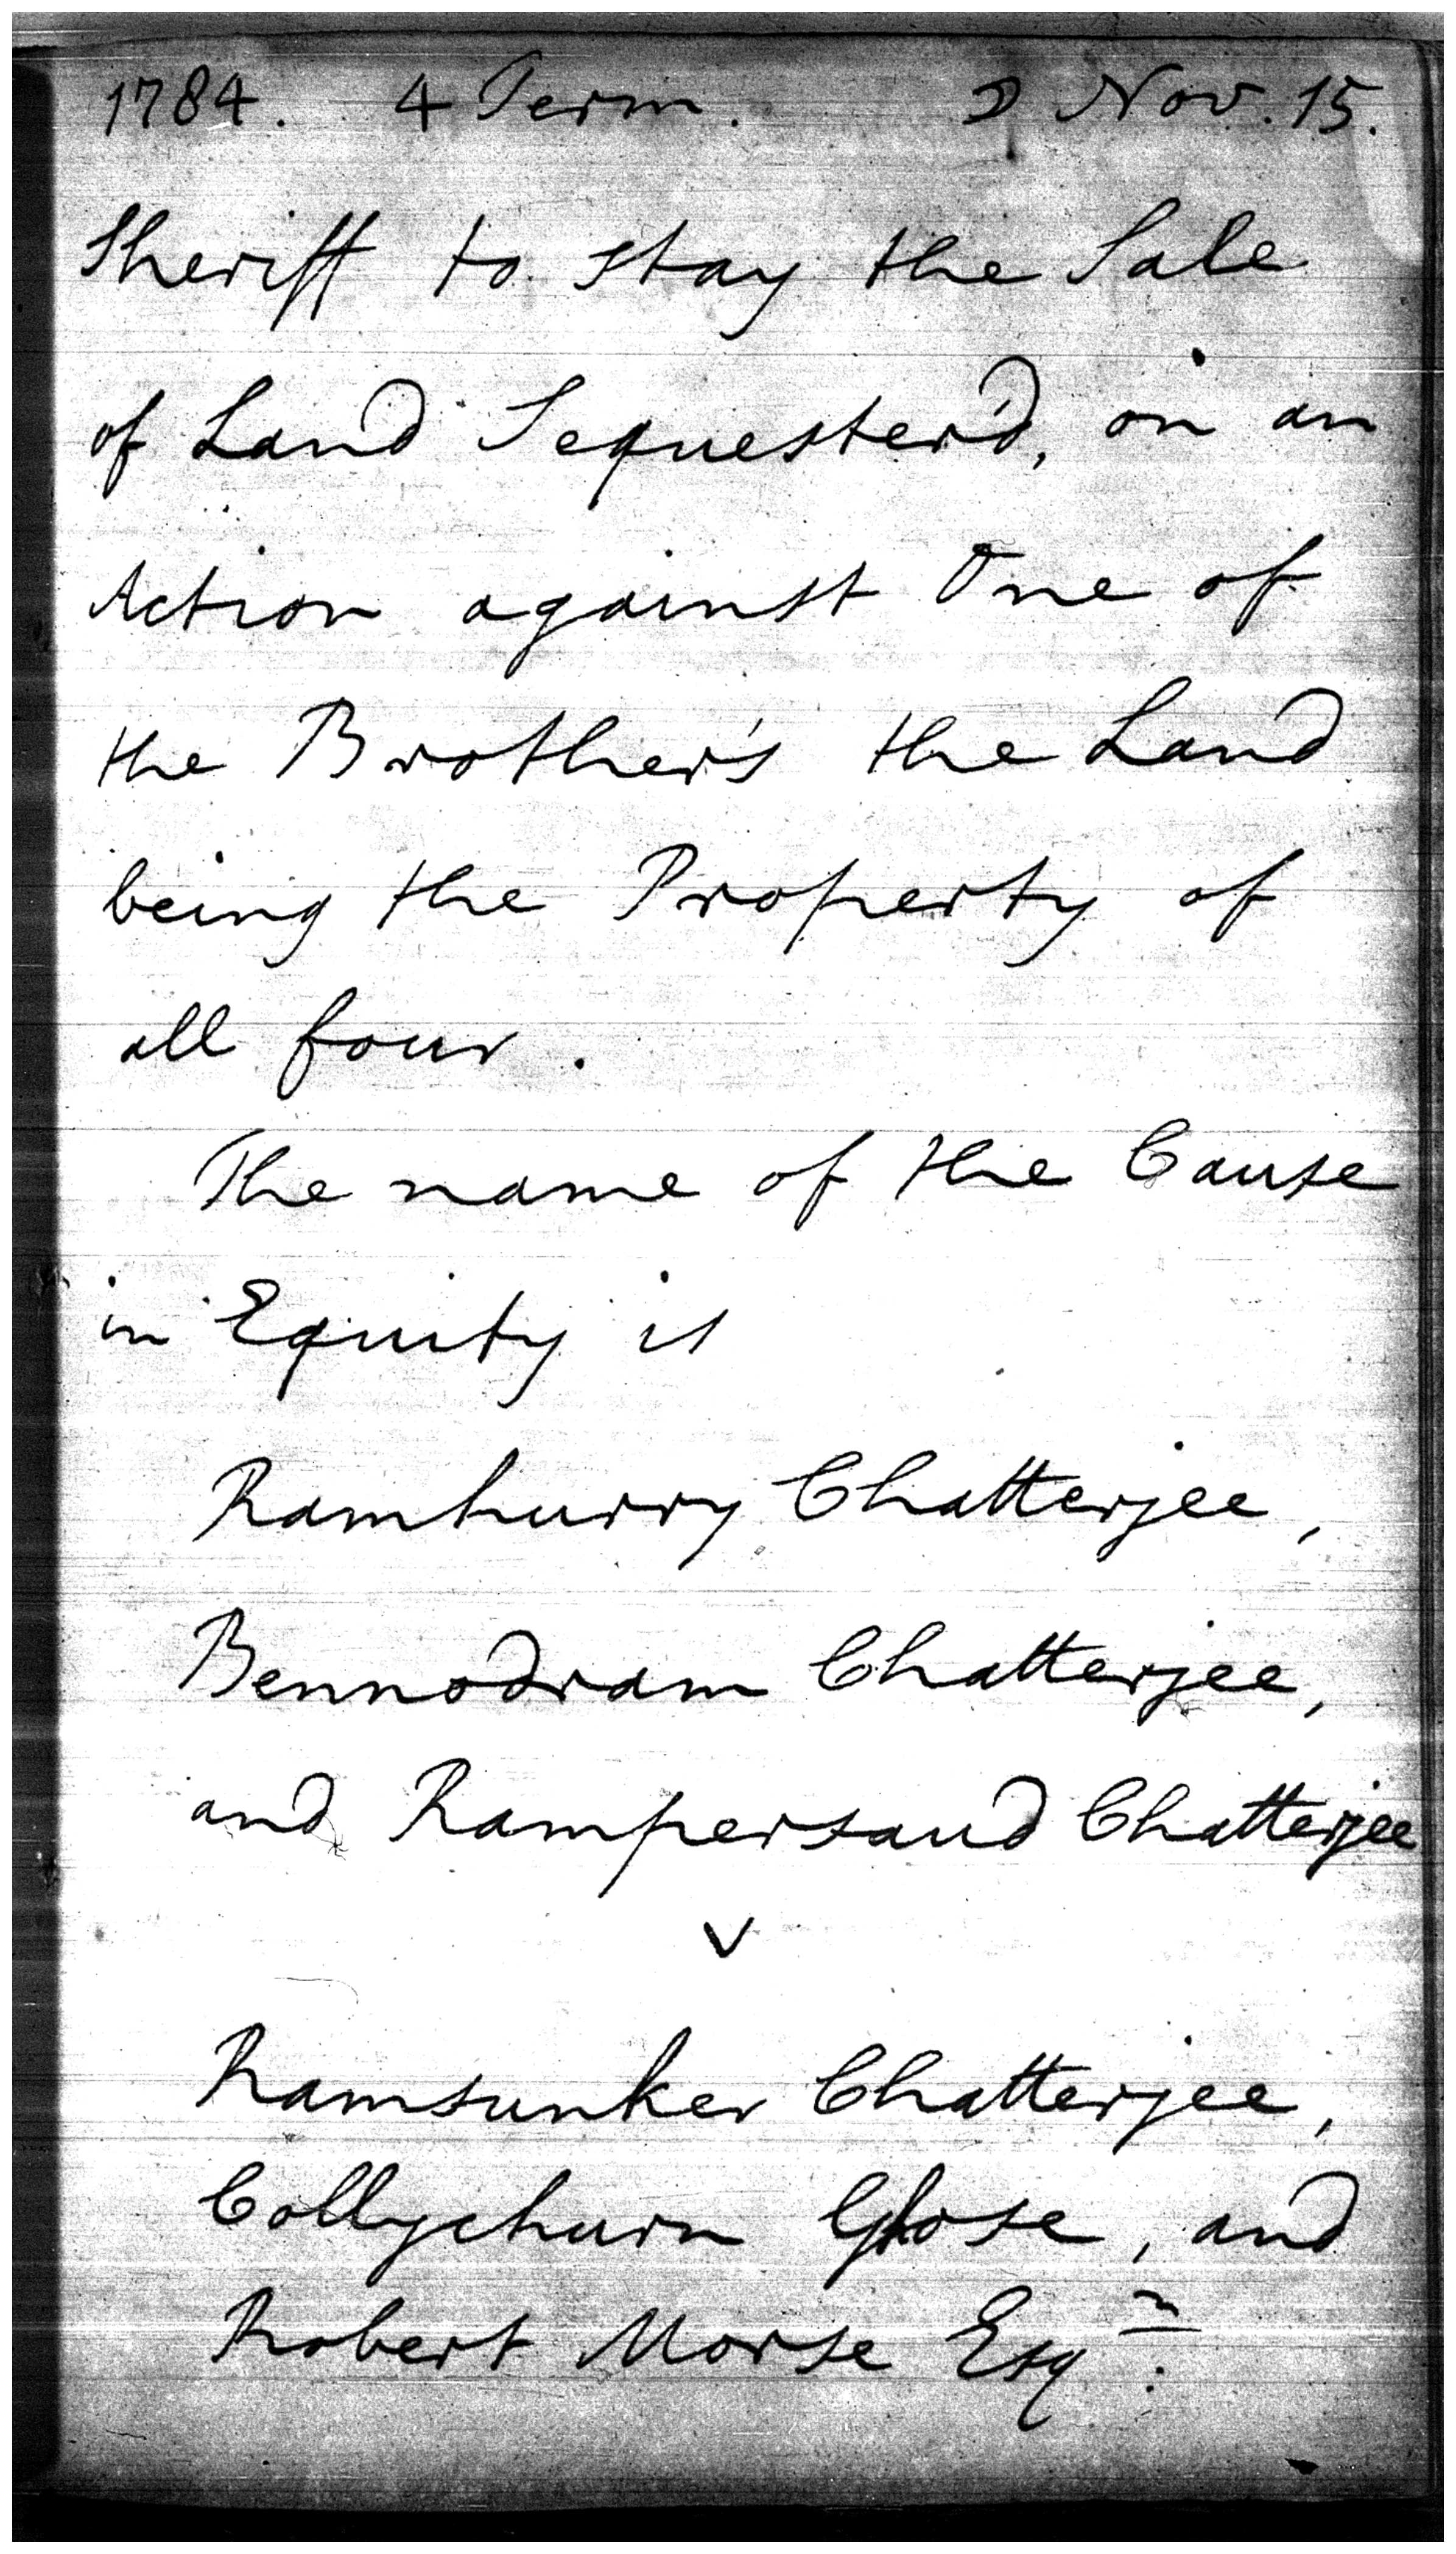 1784. 4 Term. ☽ Nov. 15.
Sheriff to stay the Sale
of Land Sequester'd, on an
Action against One of
the Brother's the Land
being the Property of
all four.
The name of the Cause
in Equity is
Ramhurry Chatterjee,
Bennodram Chatterjee,
and Rampersaud Chatterjee
v
Ramsunker Chatterjee,
Collychurn Ghose, and
Robert Morse Esqr.